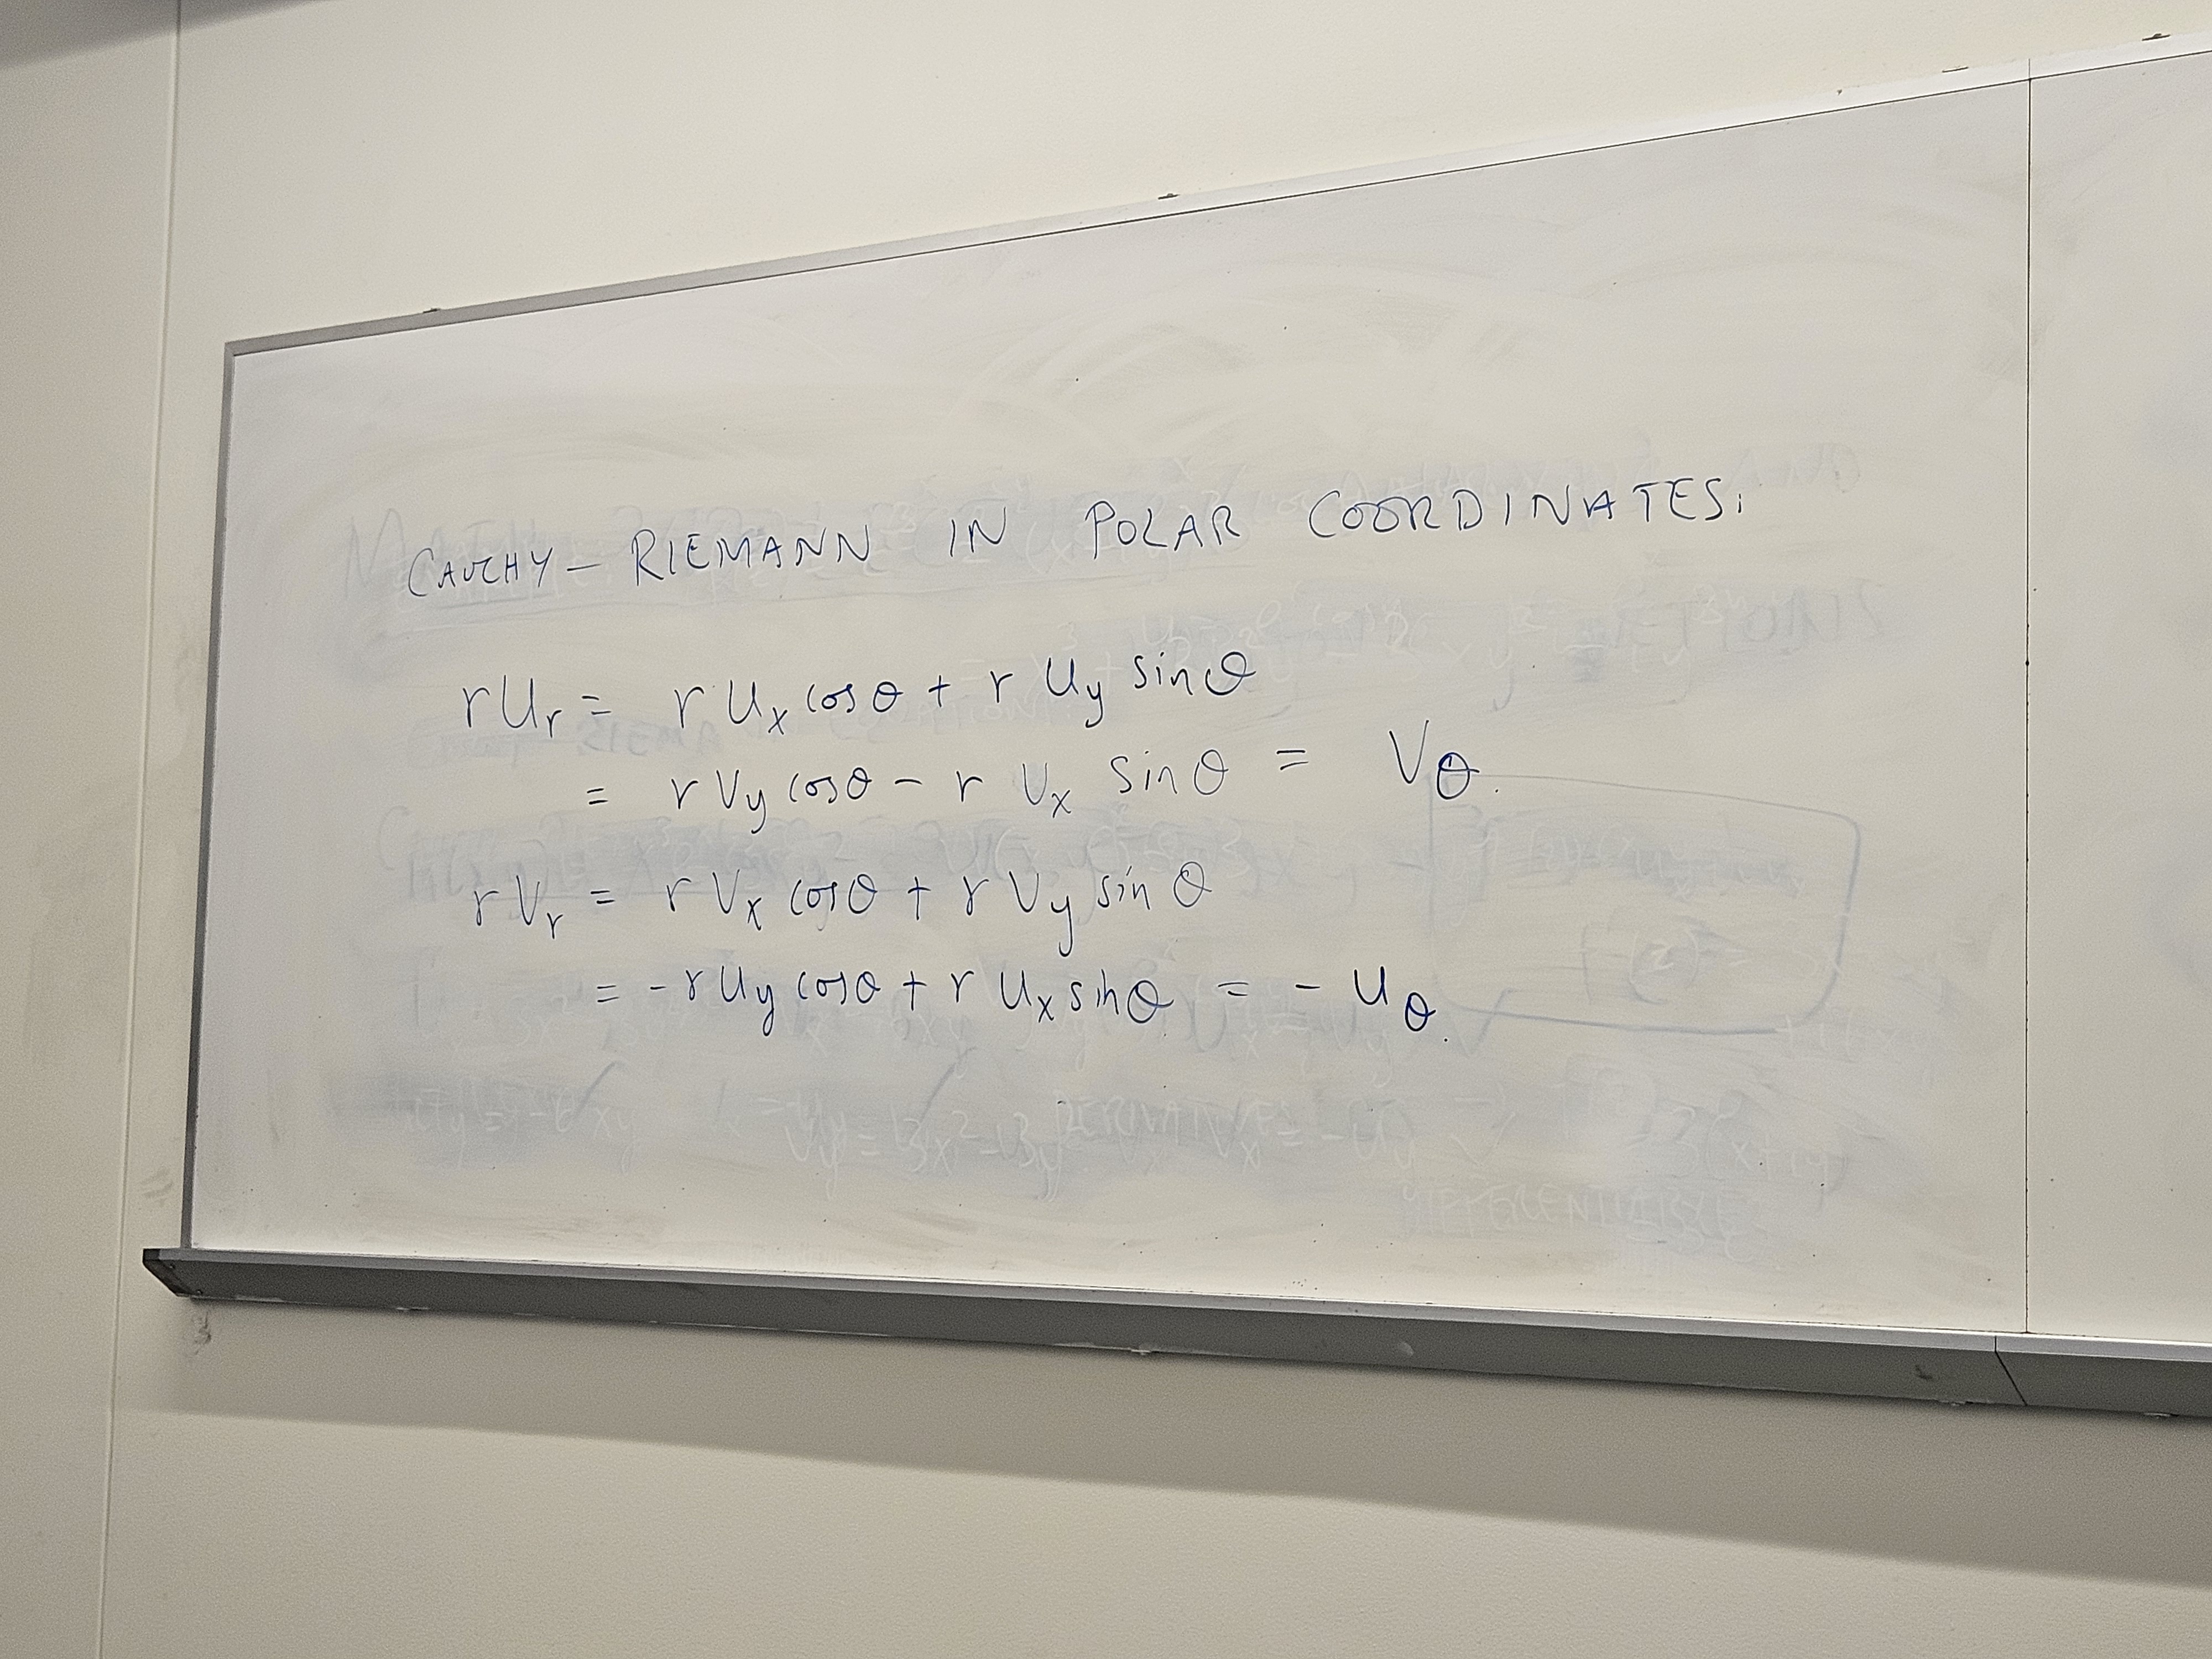 CAUCHY - RIEMANN IN POLAR COORDINATES:
r u_r = r u_x cosθ + r u_y sinθ
= r v_y cosθ - r v_x sinθ = v_θ.
r v_r = r v_x cosθ + r v_y sinθ
= - r u_y cosθ + r u_x sinθ = - u_θ.